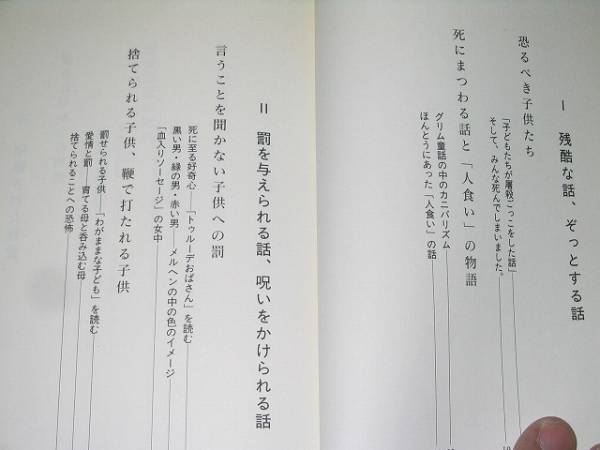 I 残酷な話、ぞっとする話
恐るべき子供たち
「子どもたちが屠殺ごっこをした話」
そして、みんな死んでしまいました。
死にまつわる話と「人食い」の物語
グリム童話の中のカニバリズム
ほんとうにあった「人食い」の話
II 罰を与えられる話、呪いをかけられる話
言うことを聞かない子供への罰
死に至る好奇心——「トゥルーデおばさん」を読む
黒い男・緑の男・赤い男——メルヘンの中の色のイメージ
「血入りソーセージ」の女中
捨てられる子供、鞭で打たれる子供
罰せられる子供——「わがままな子ども」を読む
愛情と罰——育てる母と呑み込む母
捨てられることへの恐怖